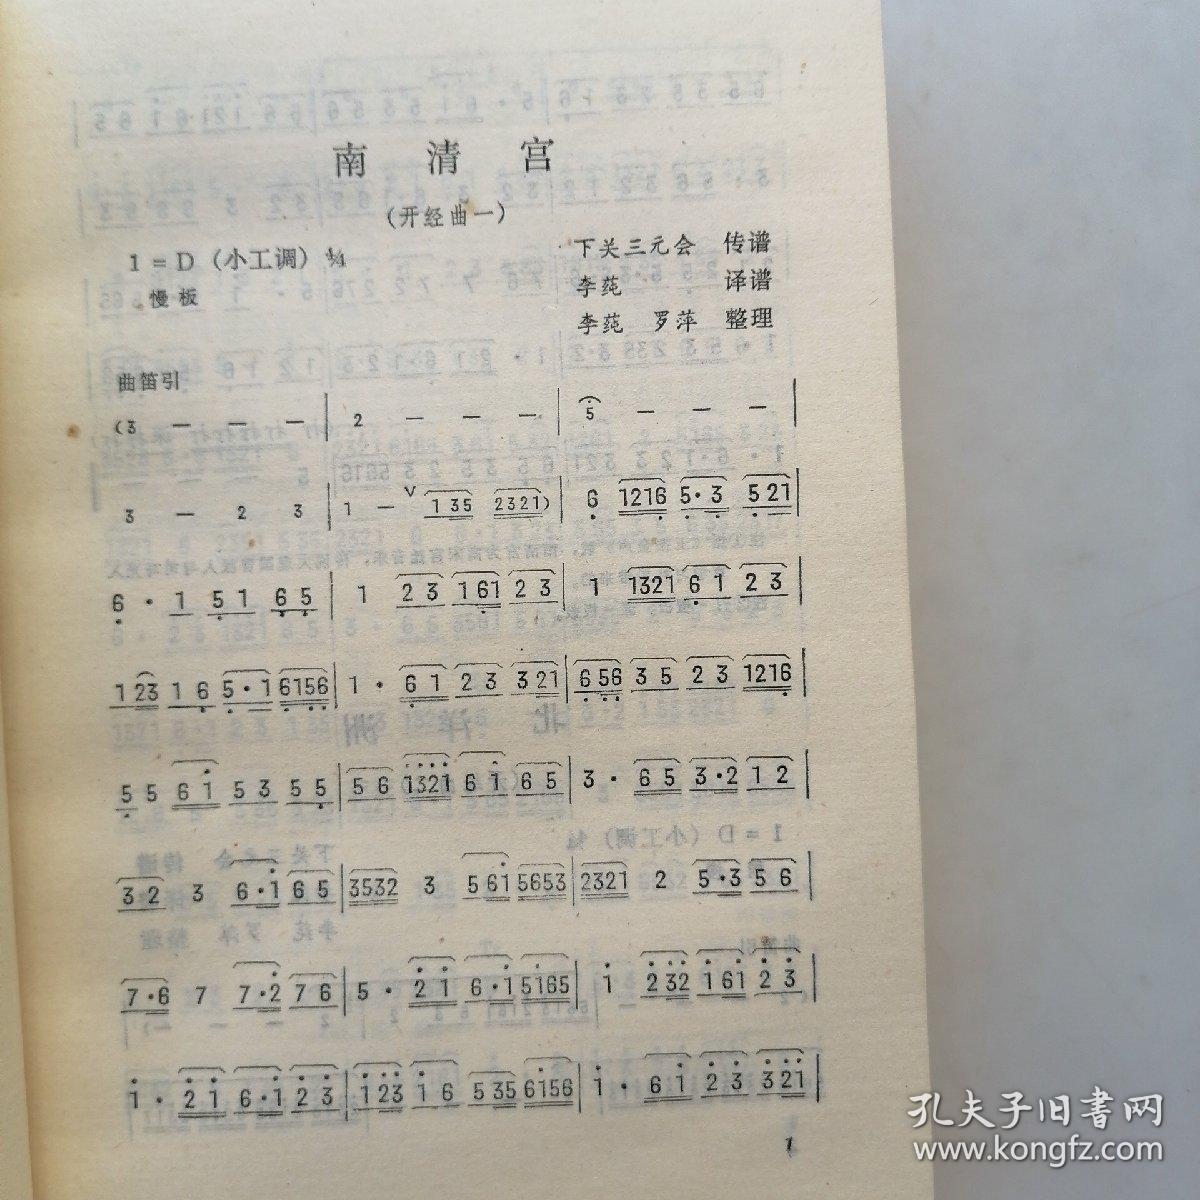 南 清 宫
(开经曲一)
1 = D (小工调) 4/4
下关三元会 传谱
慢板
李莼 译谱
李莼 罗萍 整理
曲笛引
(3 — — — | 2 — — — | 5 — — — |
3 — 2 3 | 1 — V 1 35 2321) | 6 1216 5·3 521 |
6 · 1 51 65 | 1 23 161 23 | 1 1321 61 23 |
123 16 5·1 6156 | 1 · 61 23 321 | 656 35 23 1216 |
55 61 53 55 | 56 1321 61 65 | 3 · 65 3·2 12 |
32 3 6·1 65 | 3532 3 561 5653 | 2321 2 5·3 56 |
7·6 7 7·2 76 | 5 · 21 6·1 5165 | 1 232 161 23 |
1 · 21 6·1 23 | 123 16 535 6156 | 1 · 61 23 321 |
1
孔夫子旧书网
www.kongfz.com